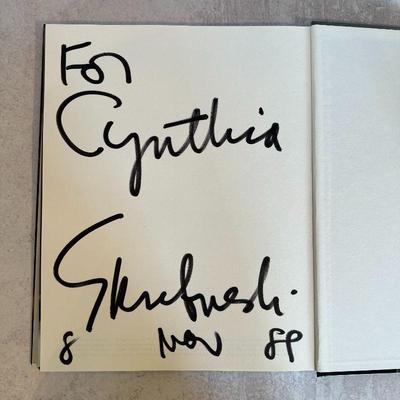 For
Cynthia
Skrebneski.
8 Nov 89